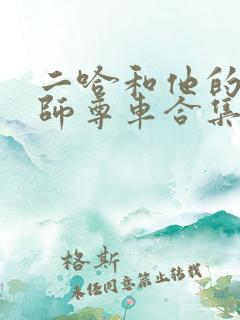 二哈和他的
師尊車合集
格斯
未经同意禁止转载